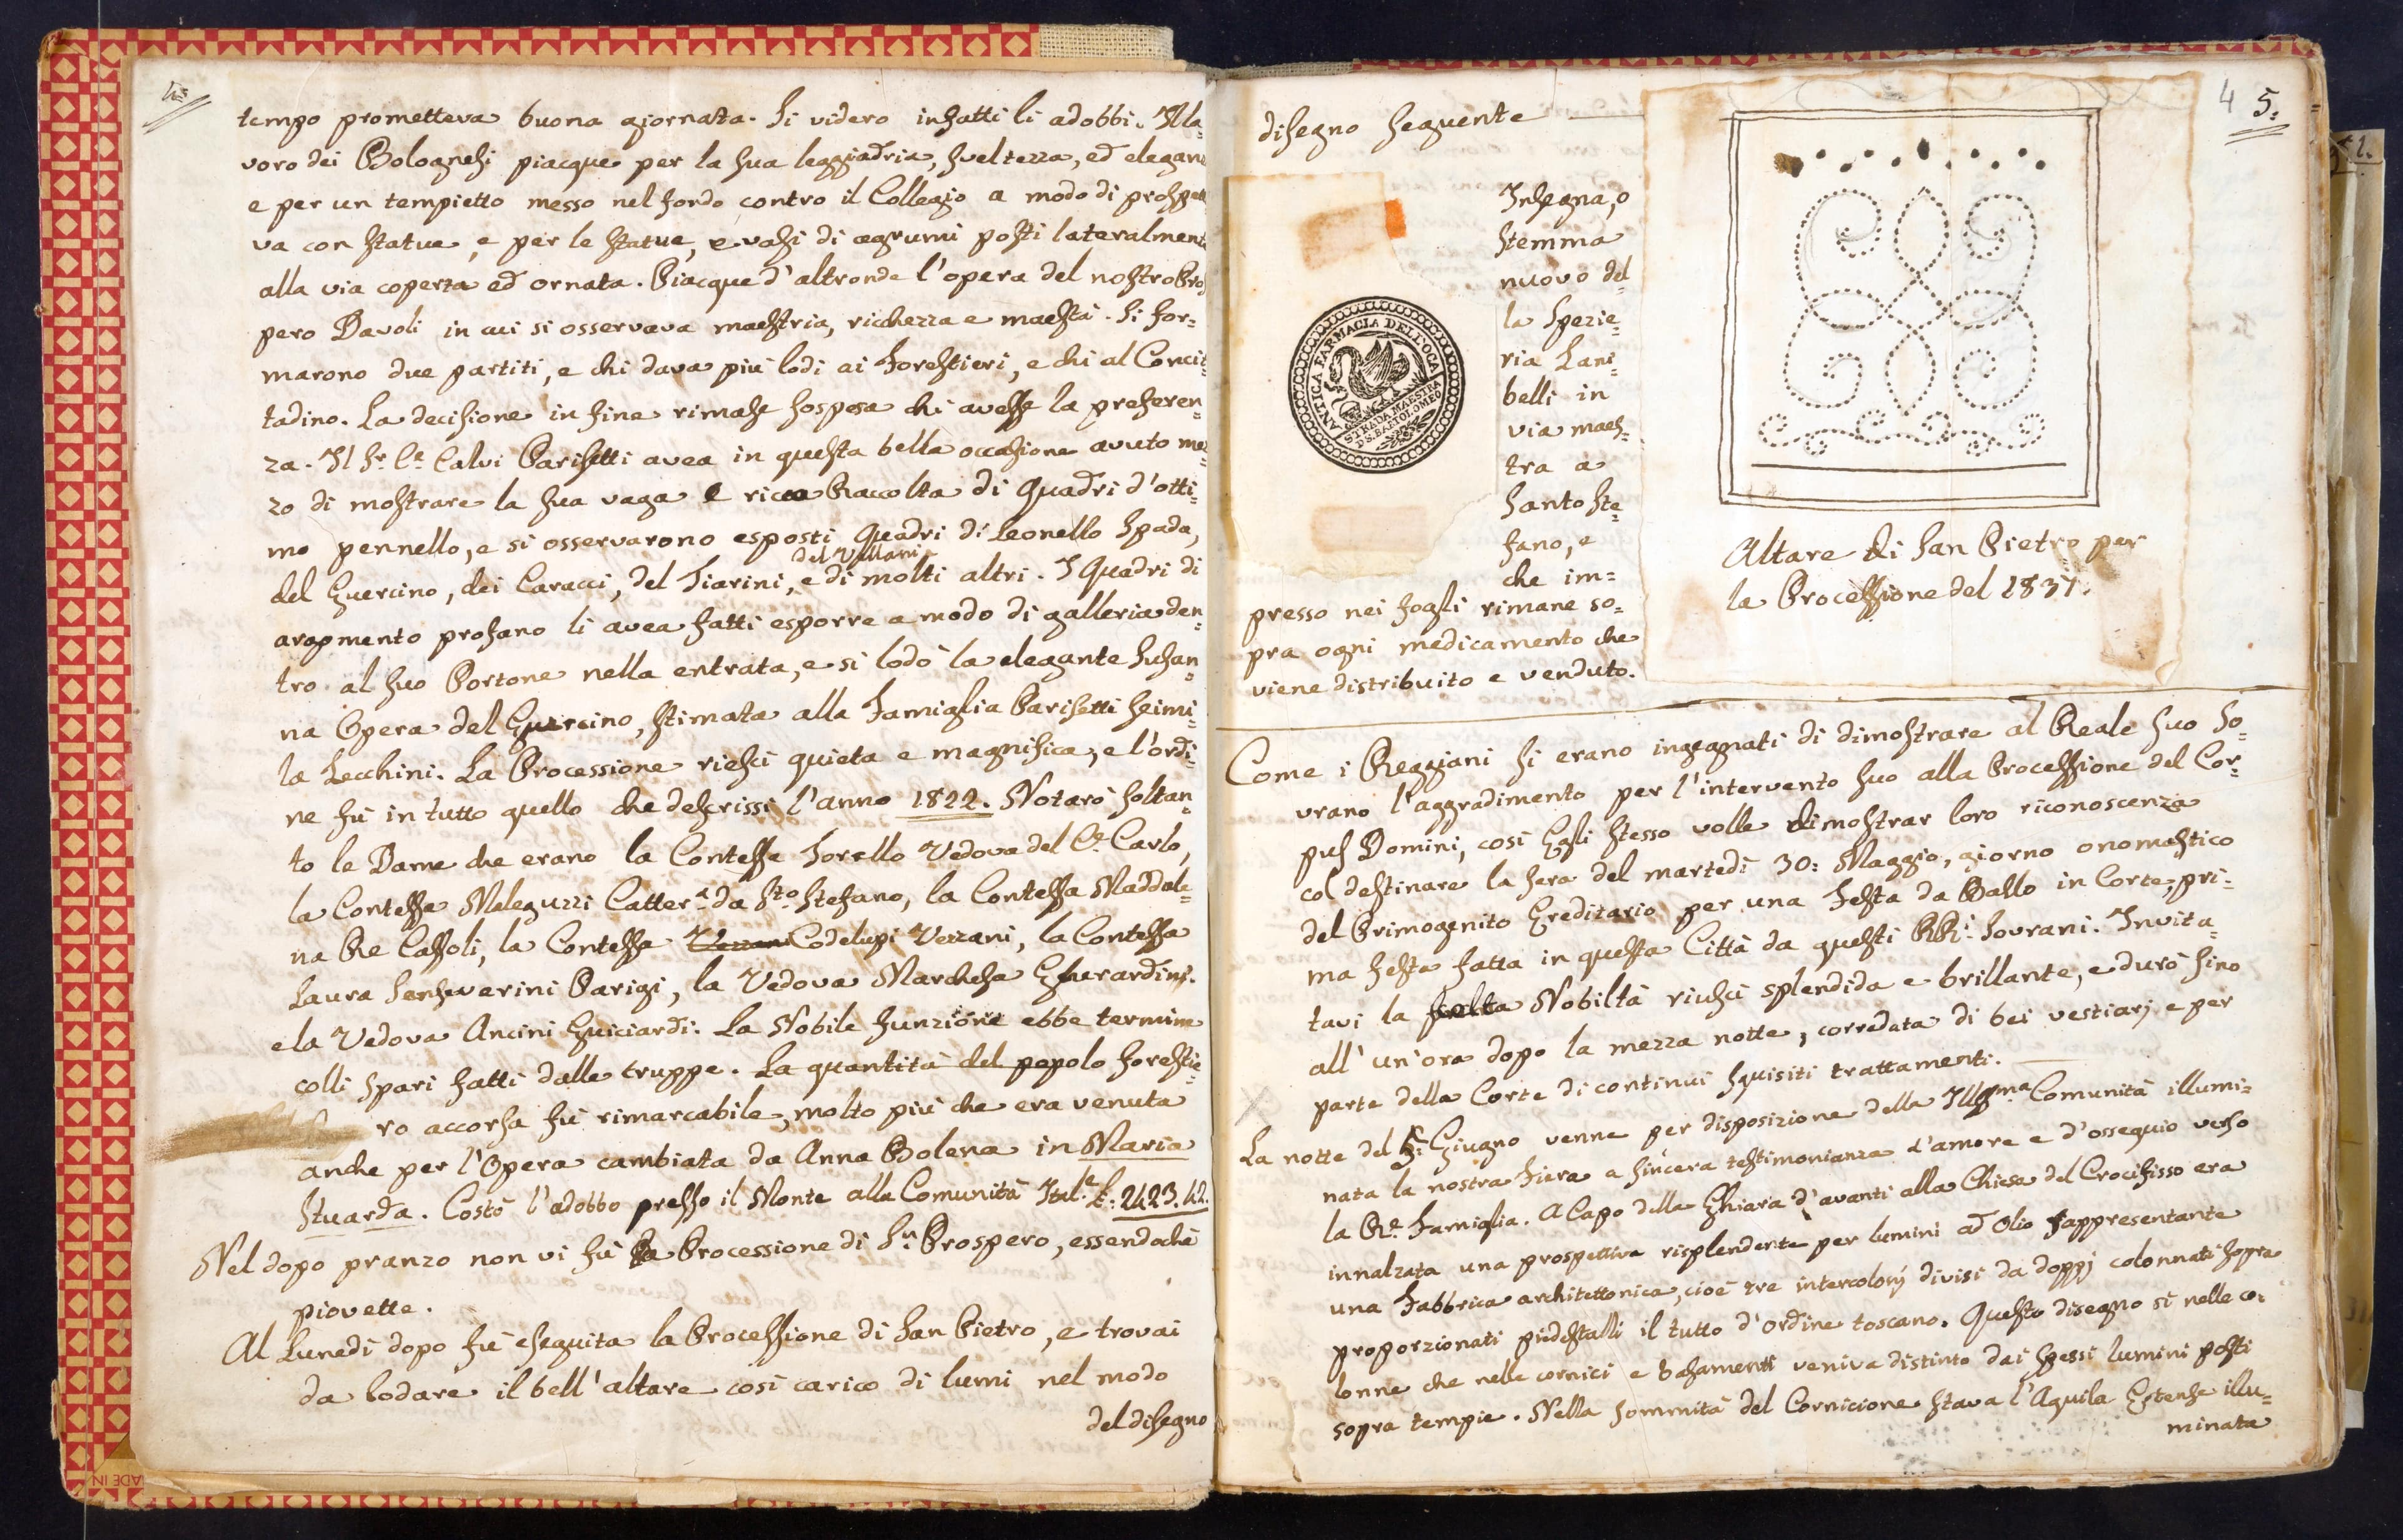 4:
tempo prometteva buona giornata. Si videro infatti li adobbi. Il la=
voro dei Bolognesi piacque per la sua leggiadria, sveltezza, ed elegan
e per un tempietto messo nel fondo contro il Collegio a modo di prospet
va con statue, e per le statue, e vasi di agrumi posti lateralment
alla via coperta ed ornata. Piacque d'altronde l'opera del nostro Pros
pero Davoli in cui si osservava maestria, ricchezza e maestà. Si for=
marono due partiti, e chi dava più lodi ai Forestieri, e chi al Concit=
tadino. La decisione in fine rimase sospesa chi avesse la preferen=
za. Il Sr. Ce. Calvi Parisetti avea in questa bella occasione avuto mez=
zo di mostrare la sua vaga e ricca Raccolta di Quadri d'otti=
mo pennello, e si osservarono esposti Quadri di Leonello Spada,
del Vellani
del Guercino, dei Caracci, del Tiarini, e di molti altri. I Quadri di
argomento profano li avea fatti esporre a modo di galleria den=
tro al suo Portone nella entrata, e si lodò la elegante Susan=
na Opera del Guercino, stimata alla Famiglia Parisetti seimi=
la Zecchini. La Processione riescì quieta e magnifica, e l'ordi=
ne fù in tutto quello che descrissi l'anno 1822. Notarò soltan=
to le Dame che erano la Contessa Torello Vedova del Ce. Carlo,
la Contessa Maleguzzi Catter.a da Sto. Stefano, la Contessa Maddale=
na Re Cassoli, la Contessa Vezzani Codelupi Vezzani, la Contessa
Laura Sanseverini Parigi, la Vedova Marchesa Gherardini.
e la Vedova Ancini Guiciardi. La Nobile funzione ebbe termine
colli spari fatti dalle truppe. La quantità del popolo forestie=
ro accorsa fù rimarcabile, molto più che era venuta
anche per l'Opera cambiata da Anna Bolena in Maria
Stuarda. Costò l'adobbo presso il Monte alla Comunità Ital.e L: 2423.42.
Nel dopo pranzo non vi fù la Processione di Sn. Prospero, essendochè
piovette.
Al Lunedì dopo fù eseguita la Processione di San Pietro, e trovai
da lodare il bell'altare così carico di lumi nel modo
del disegno
4 5:
disegno seguente
Insegna, o
stemma
nuovo del=
la Spezie=
ria Zani=
belli in
via maes=
tra a
Santo Ste=
fano, e
che im=
presso nei fogli rimane so=
pra ogni medicamento che
viene distribuito e venduto.
ANTICA FARMACIA DELL'OCA
STRADA MAESTRA
D S. BARTOLOMEO
Altare di San Pietro per
la Processione del 1837.
Come i Reggiani si erano ingegnati di dimostrare al Reale suo So=
vrano l'aggradimento per l'intervento suo alla Processione del Cor=
pus Domini, così Egli stesso volle dimostrar loro riconoscenza
col destinare la sera del martedì 30: Maggio, giorno onomastico
del Primogenito Ereditario per una Festa da Ballo in Corte, pri=
ma festa fatta in questa Città da questi RRi. Sovrani. Invita=
tavi la Nobiltà riuscì splendida e brillante, e durò fino
all'un'ora dopo la mezza notte, corredata di bei vestiarj e per
parte della Corte di continui squisiti trattamenti.
La notte del Giugno venne per disposizione della Illma Comunità illumi=
nata la nostra Fiera a sincera testimonianza d'amore e d'ossequio verso
la Re. Famiglia. A Capo della Ghiara d'avanti alla Chiesa del Crocifisso era
innalzata una prospettiva risplendente per lumini ad Olio rappresentante
una Fabbrica architettonica, cioè tre intercolonj divisi da doppj colonnati sopra
proporzionati piedestalli il tutto d'Ordine toscano. Questo disegno sì nelle co=
lonne che nelle cornici e basamenti veniva distinto dai spessi lumini posti
sopra tempie. Nella sommità del Cornicione stava l'Aquila Estense illu=
minata